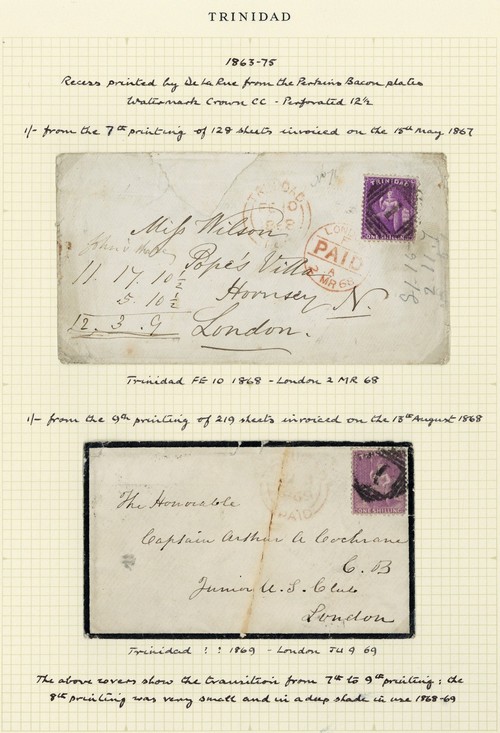 TRINIDAD
1863-75
Recess printed by De La Rue from the Perkins Bacon plates
Watermark Crown CC - Perforated 12½
1/- from the 7th printing of 128 sheets invoiced on the 15th May 1867
TRINIDAD
TRINIDAD
ONE SHILLING
Miss Wilson
PAID
MR 68
Pope's Villa
11. 17. 10½
Hornsey N.
5. 10½
12. 3. 9
London.
Trinidad FE 10 1868 - London 2 MR 68
1/- from the 9th printing of 219 sheets invoiced on the 13th August 1868
ONE SHILLING
PAID
The Honorable
Captain Arthur A Cochrane
C. B
Junior U. S. Club
London
Trinidad ? ? 1869 - London JU 9 69
The above covers show the transition from 7th to 9th printing; the
8th printing was very small and in a deep shade in use 1868-69